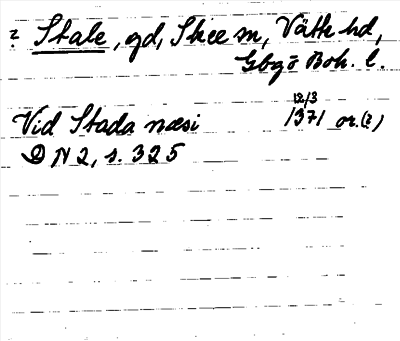 ? Stale, gd, Skee sn, Vätte hd,
Gbgs o Boh. l.
12/3
Vid Stada næsi 1371 or. (?)
DN 2, s. 325